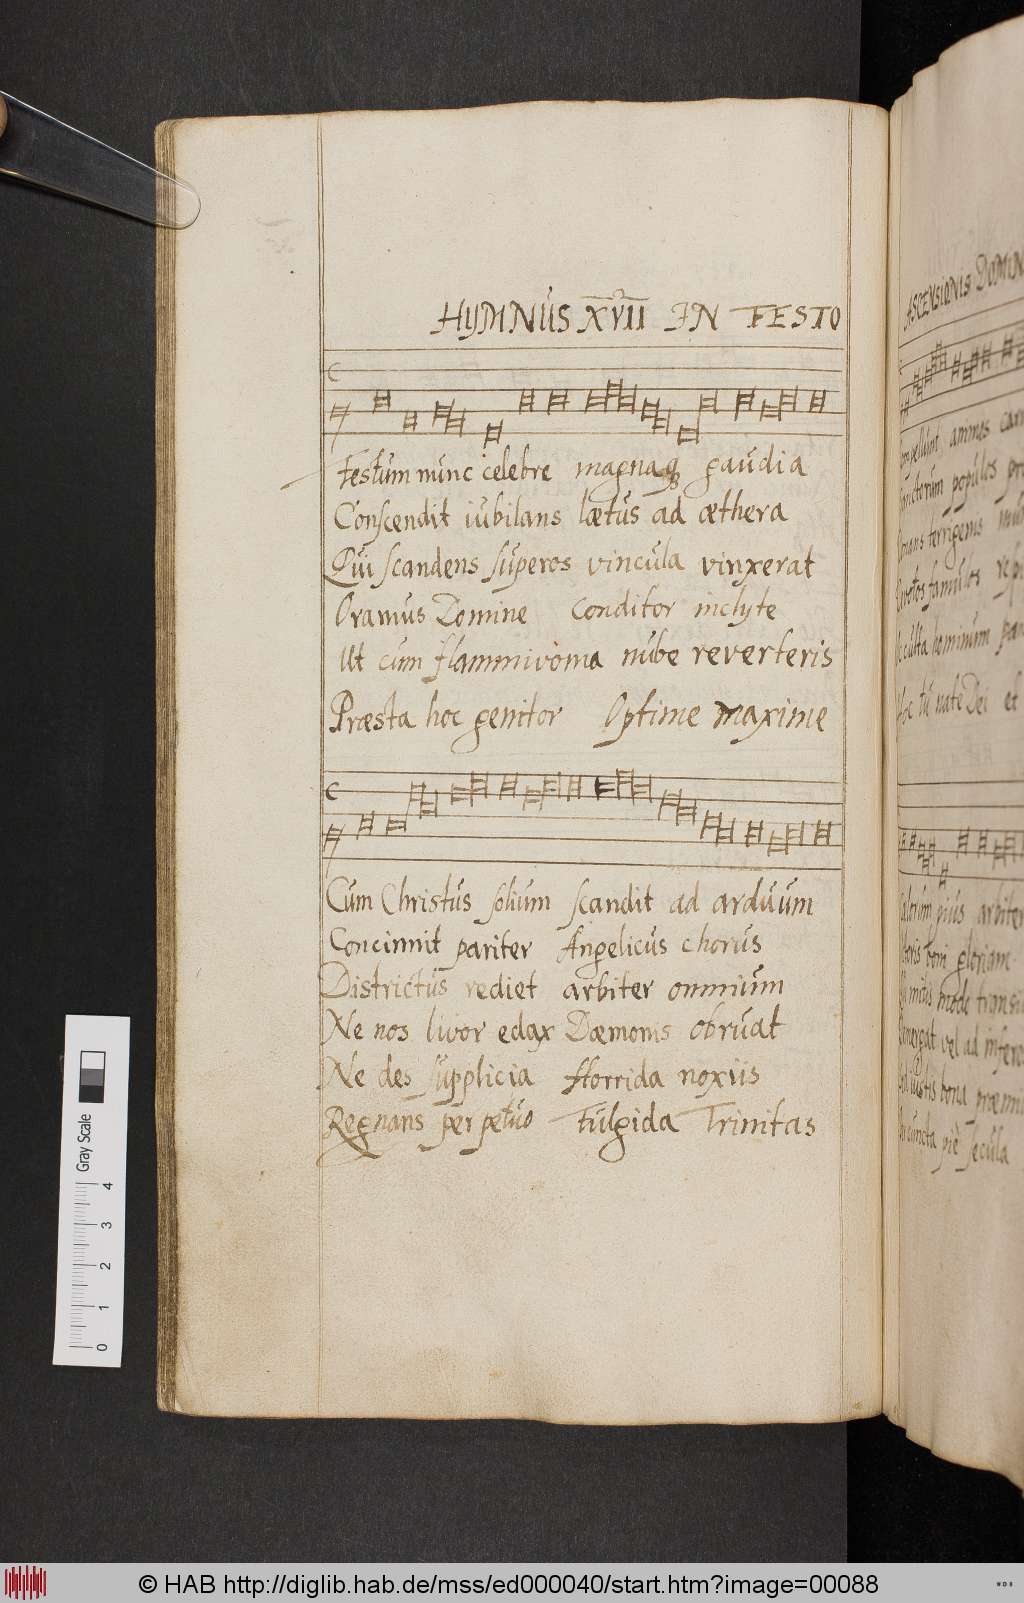 HYMNUS XVII IN FESTO
Festum nunc celebre magnaq gaudia
Conscendit iubilans lætus ad æthera
Qui scandens superos vincula vinxerat
Oramus Domine Conditor inclyte
Ut cum flammivoma nube reverteris
Præsta hoc genitor Optime maxime
Cum Christus solium scandit ad arduum
Concinnit pariter Angelicus chorus
Districtus rediet arbiter omnium
Ne nos livor edax Dæmonis obruat
Ne des supplicia Horrida noxiis
Regnans perpetuo Fulgida Trinitas
ASCENSIONIS DOMIN
animos
populos
terrigenis
famulos
hominum
tu nate Dei et
pius arbiter
boni gloriam
vel ad infero
bona præmi
cuncta piè secula
Gray Scale
0 1 2 3 4
© HAB http://diglib.hab.de/mss/ed000040/start.htm?image=00088